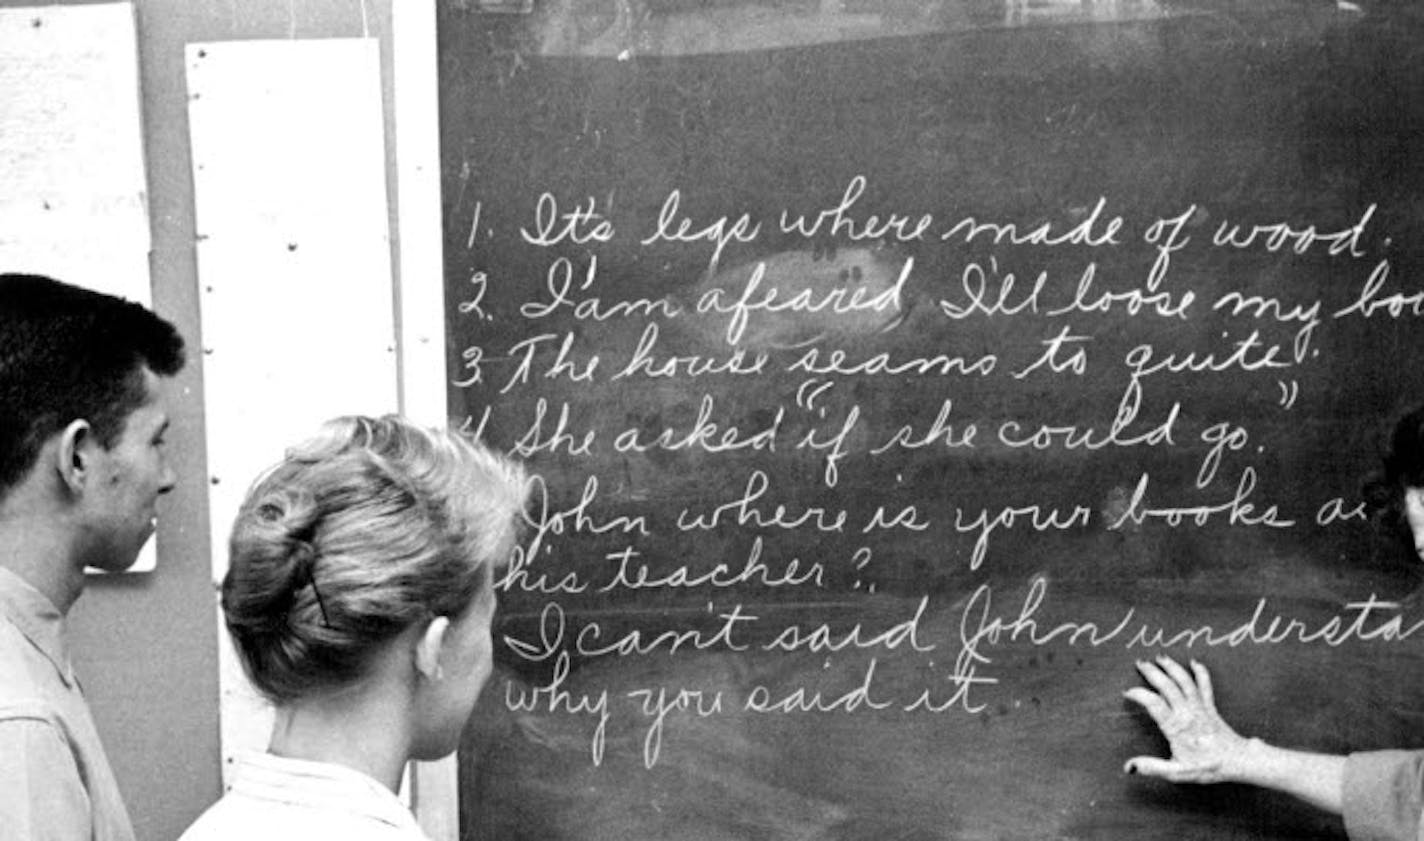 1. It's legs where made of wood.
2. I'am afeared I'll loose my
3. The house seams to quite.
4 She asked "if she could go."
John where is your books
his teacher?
I can't said John
why you said it.